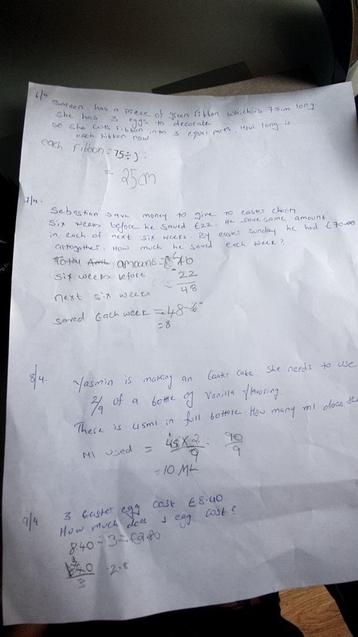 6/4 Doreen has a piece of green ribbon which is 75cm long
She has 3 eggs to decorate
so she cuts ribbon into 3 equal parts. How long is
each ribbon now
each ribbon = 75÷3
= 25cm
7/4. Sebastian save money to give to easter
Six weeks before he saved £22. He save same amount
in each of next six weeks. By easter sunday he had £70.00
altogether. How much he saved each week?
Total amount = £70
Six weeks before 22
next six weeks 48
saved Each week = 48÷6
= 8
8/4. Yasmin is making an Easter cake She needs to use
2/9 of a bottle of Vanilla flavouring.
There is 45ml in full bottle. How many ml does she
Ml used = 45 x 2 / 9 = 90 / 9
= 10 ML
9/4 3 Easter egg cost £8.40
How much does 1 egg cost?
8.40 ÷ 3 = £2.80
840 / 3 2.8